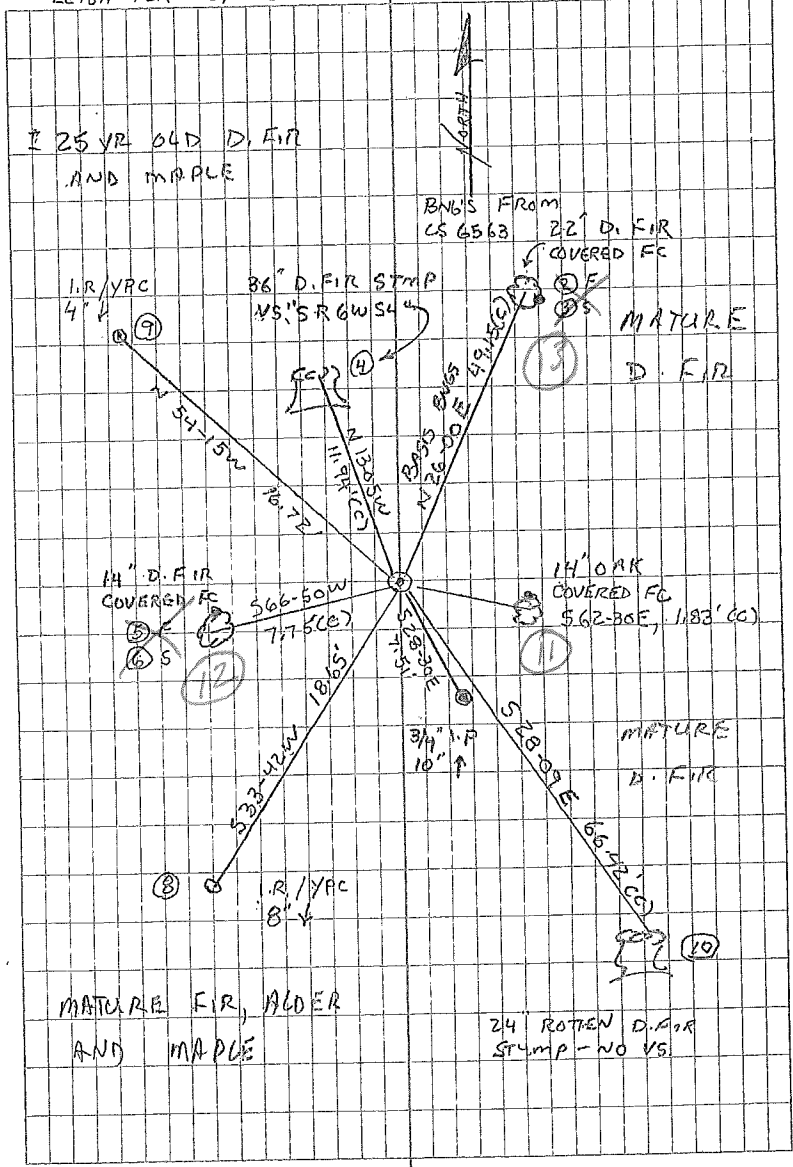 NORTH
± 25 YR OLD D. FIR
AND MAPLE
BNG'S FROM
CS 6563
22" D. FIR
COVERED FC
② F
③ S
⑬
MATURE
D. FIR
I.R/YPC
4" ↓
⑨
36" D. FIR STMP
VS. "S R 6W S4"
④
N 54-15W
16.72'
N 1305W
11.94'(C)
BASIS BNGS
N 26-00E
49.15(C)
14" D. FIR
COVERED FC
⑤ F
⑥ S
⑫
S66-50W
7.75(C)
14" OAK
COVERED FC
S62-30E, 1.83' (C)
⑪
S28-30E
7.51'
3/4" I.P
10" ↑
MATURE
D. FIR
S33-42W
18.65'
S28-09E
66.42'(C)
⑧
I.R./YPC
8" ↓
⑩
MATURE FIR, ALDER
AND MAPLE
24" ROTTEN D. FIR
STUMP - NO VS.